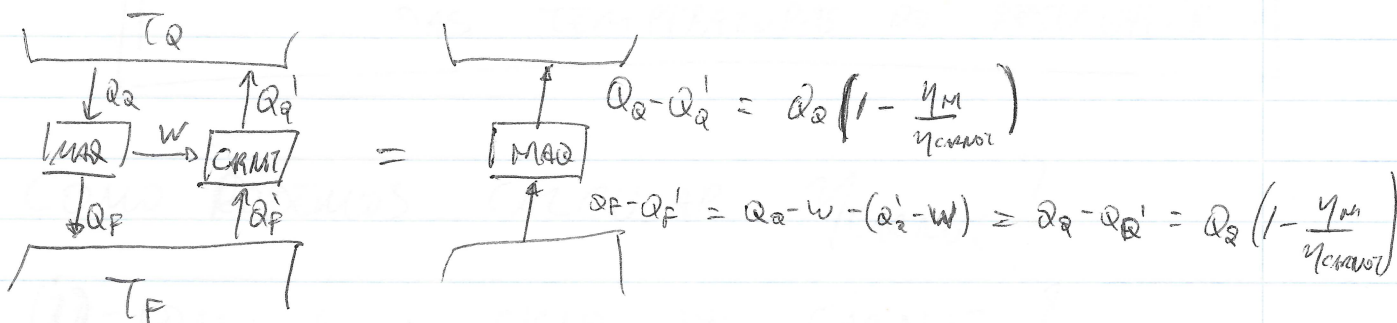 T_Q
Q_Q
Q_Q'
MAQ
W
CARNOT
Q_F
Q_F'
T_F
=
MAQ
Q_Q - Q_Q' = Q_Q (1 - η_M / η_CARNOT)
Q_F - Q_F' = Q_Q - W - (Q_Q' - W) = Q_Q - Q_Q' = Q_Q (1 - η_M / η_CARNOT)